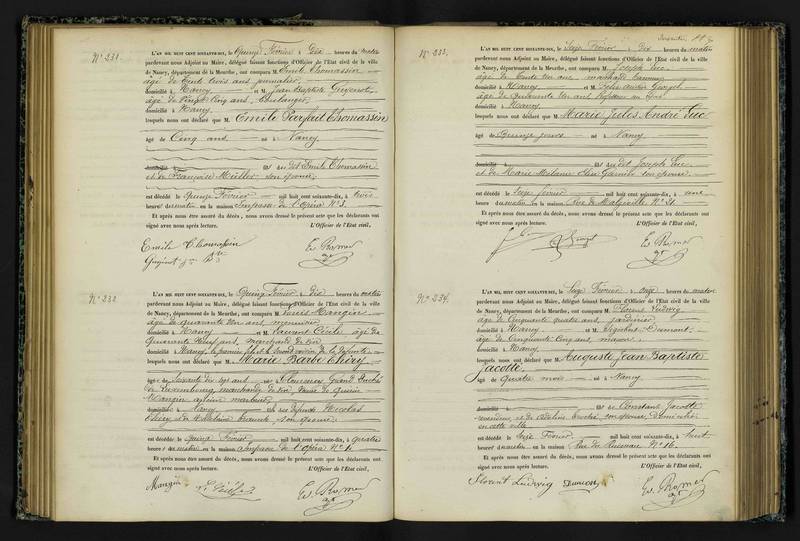 N° 231.
L'AN MIL HUIT CENT SOIXANTE-DIX, le Quinze Février à Dix heures du matin
pardevant nous Adjoint au Maire, délégué faisant fonctions d'Officier de l'État civil de la ville
de Nancy, département de la Meurthe, ont comparu M. Emile Thomassin
âgé de trente trois ans journalier,
domicilié à Nancy et M. Jean Baptiste Guyinot,
âgé de Vingt Cinq ans, Boulanger,
domicilié à Nancy
lesquels nous ont déclaré que M. Emile Parfait Thomassin
âgé de Cinq ans né à Nancy
domicilié à fils du dit Emile Thomassin
et de Françoise Müller son épouse,
est décédé le Quinze Février mil huit cent soixante-dix, à trois
heures du matin en la maison Impasse de l'Opéra N° 3.
Et après nous être assuré du décès, nous avons dressé le présent acte que les déclarants ont
signé avec nous après lecture. L'Officier de l'État civil,
Emile Thomassin
N° 232
L'AN MIL HUIT CENT SOIXANTE-DIX, le Quinze Février à Dix heures du matin
pardevant nous Adjoint au Maire, délégué faisant fonctions d'Officier de l'État civil de la ville
de Nancy, département de la Meurthe, ont comparu M. Louis Mangin
âgé de quarante un ans menuisier
domicilié à Nancy et M. Laurent Cécile âgé de
Quarante Neuf ans, marchand de
domicilié à Nancy, le premier fils et le second voisin de la défunte
lesquels nous ont déclaré que M. Marie Barbe Thiry
âgé de Soixante dix sept ans née à Grand Duché
de Luxembourg, marchande de veuve de
Mangin
domicilié à Nancy fille des défunts Nicolas
Thiry et de son épouse
est décédé le Quinze Février mil huit cent soixante-dix, à quatre
heures du matin en la maison Impasse de l'Opéra N° 1
Et après nous être assuré du décès, nous avons dressé le présent acte que les déclarants ont
signé avec nous après lecture. L'Officier de l'État civil,
Mangin
N° 233.
L'AN MIL HUIT CENT SOIXANTE-DIX, le Seize Février à Dix heures du matin
pardevant nous Adjoint au Maire, délégué faisant fonctions d'Officier de l'État civil de la ville
de Nancy, département de la Meurthe, ont comparu M. Joseph Luc
âgé de trente ans,
domicilié à Nancy et M. Jules
âgé de Quarante ans
domicilié à Nancy
lesquels nous ont déclaré que M. Marie Jules André Luc
âgé de Quinze jours né à Nancy
domicilié à fils du dit Joseph Luc
et de Marie Mélanie Garnier son épouse,
est décédé le Seize février mil huit cent soixante-dix, à une
heure du matin en la maison Rue de Malzéville N° 21.
Et après nous être assuré du décès, nous avons dressé le présent acte que les déclarants ont
signé avec nous après lecture. L'Officier de l'État civil,
N° 234.
L'AN MIL HUIT CENT SOIXANTE-DIX, le Seize Février à onze heures du matin
pardevant nous Adjoint au Maire, délégué faisant fonctions d'Officier de l'État civil de la ville
de Nancy, département de la Meurthe, ont comparu M. Florent Ludwig
âgé de Cinquante quatre ans, jardinier
domicilié à Nancy et M. Dumont,
âgé de Cinquante Cinq ans maçon,
domicilié à Nancy
lesquels nous ont déclaré que M. Auguste Jean Baptiste
Jacotte,
âgé de Quatre mois né à Nancy
domicilié à fils de Constant Jacotte
et de Adeline son épouse, domiciliés
en cette ville
est décédé le Seize Février mil huit cent soixante-dix, à huit
heures du matin en la maison Rue du Ruisseau N° 16.
Et après nous être assuré du décès, nous avons dressé le présent acte que les déclarants ont
signé avec nous après lecture. L'Officier de l'État civil,
Florent Ludwig Dumont